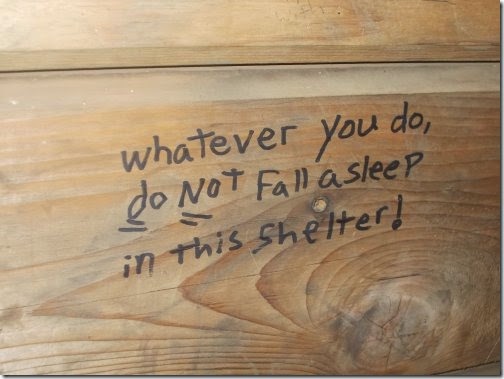 whatever you do,
do Not Fall asleep
in this shelter!